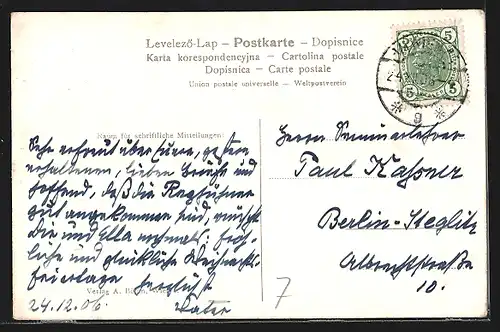 Levelező-Lap – Postkarte – Dopisnice
Karta korespondencyjna – Cartolina postale
Dopisnica – Carte postale
Union postale universelle – Weltpostverein
5 5
5 5
* g *
Raum für schriftliche Mitteilungen:
Sehr erfreut über Eueren, gestern
erhaltenen, lieben Briefe und
hoffend, daß die Rephühner
gut angekommen sind, wünscht
Die und Ella nochmals: fröh-
liche und glückliche Weihnachts-
feiertage herzlichst
Vater
24.12.06.
Verlag A.
Herrn Seminarlehrer
Paul Kassner
Berlin-Steglitz
Albrechtstraße
10.
7